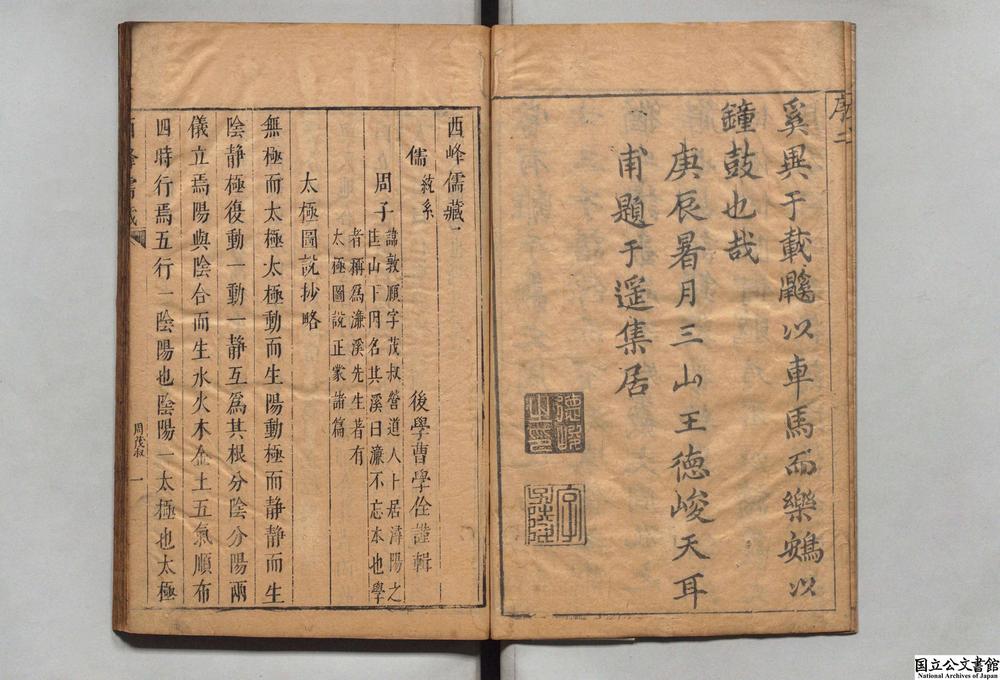 序二
奚異于載鼷以車馬而樂鴳以
鐘鼓也哉
庚辰暑月三山王德峻天耳
甫題于遥集居
德峻
之印
西峰儒藏一
儒統系
後學曹學佺謹輯
周子
諱敦頤字茂叔營道人卜居潯陽之
匡山下因名其溪曰濂不忘本也學
者稱爲濂溪先生著有
太極圖說正蒙諸篇
太極圖說抄略
無極而太極太極動而生陽動極而靜靜而生
陰靜極復動一動一靜互爲其根分陰分陽兩
儀立焉陽與陰合而生水火木金土五氣順布
四時行焉五行一陰陽也陰陽一太極也太極
西峰儒藏
周茂叔
一
国立公文書館
National Archives of Japan